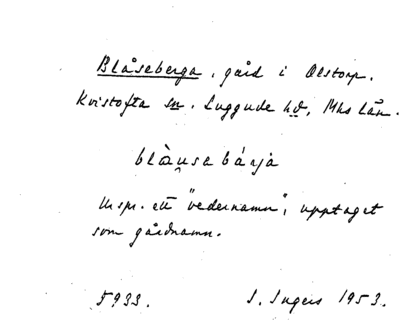 Blåseberga, gård i Olstorp.
Kvistofta sn. Luggude hd, Mhs län.
blàusabárja
Urspr. ett "vedernamn", upptaget
som gårdnamn.
5933. I. Ingers 1953.